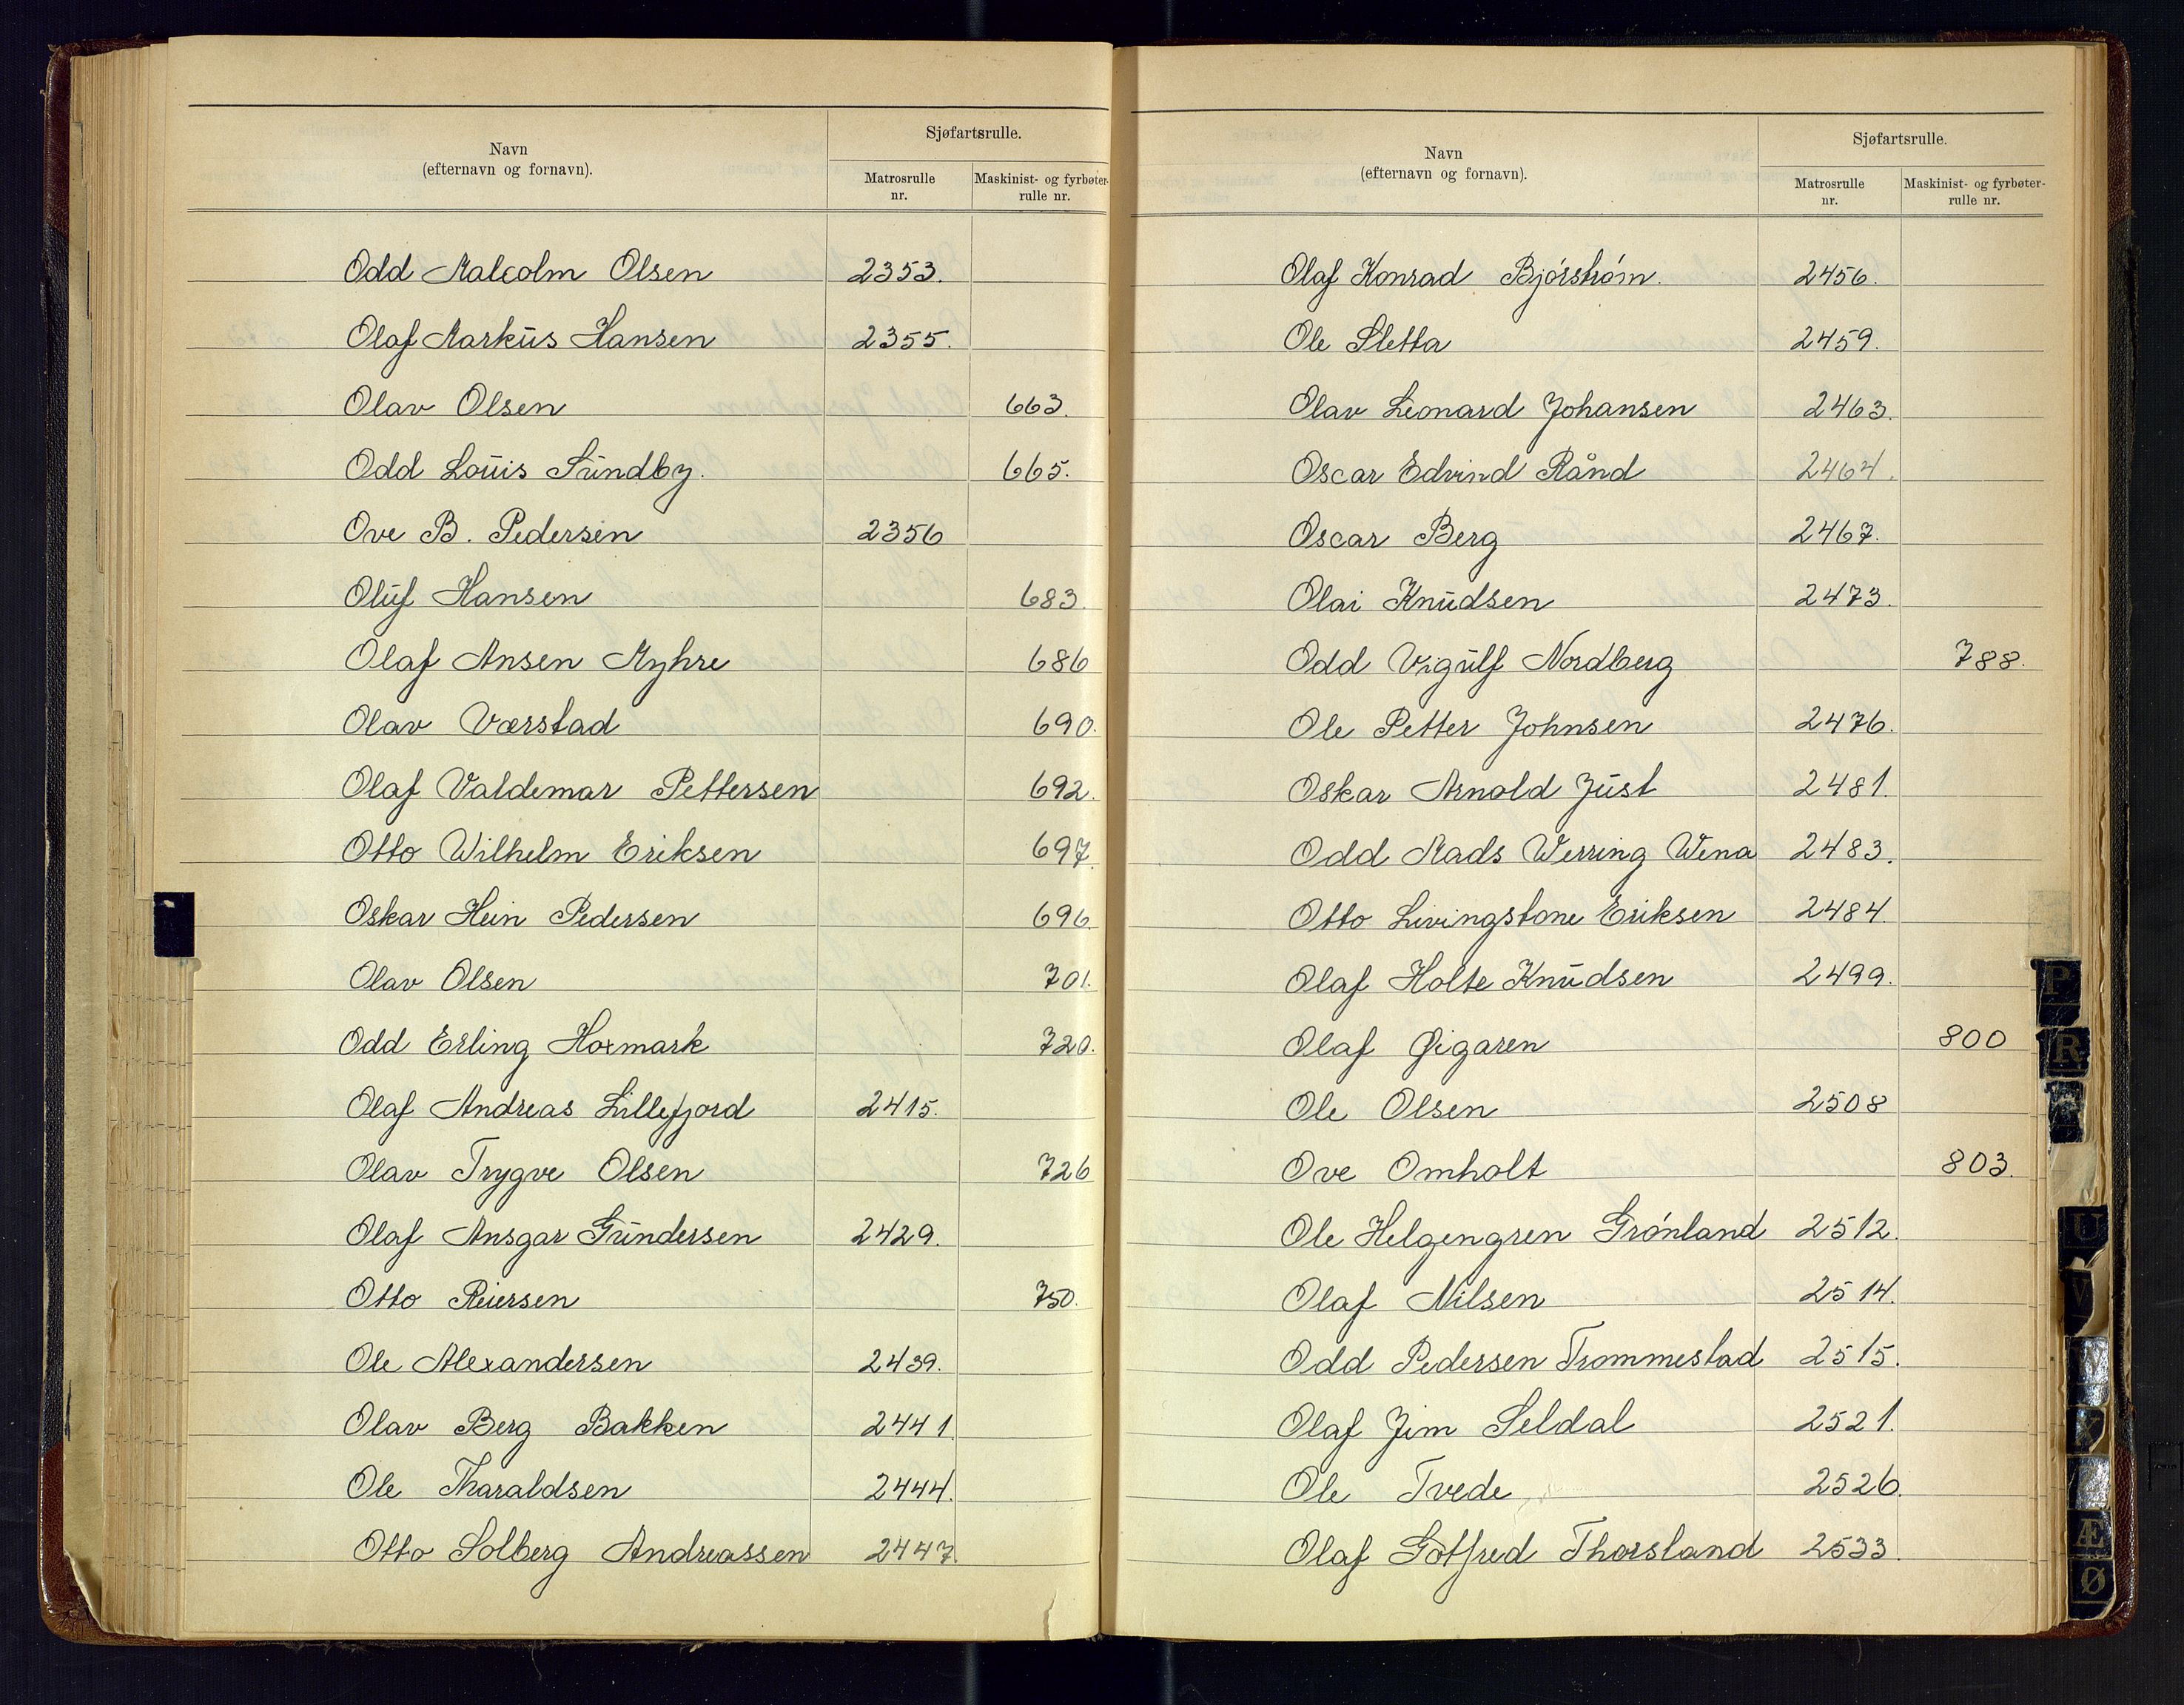 Navn
(efternavn og fornavn).
Sjøfartsrulle.
Matrosrulle
nr.
Maskinist- og fyrbøter-
rulle nr.
Odd Malcolm Olsen 2353.
Olaf Markus Hansen 2355.
Olav Olsen 663.
Odd Louis Sundby. 665.
Ove B. Pedersen 2356
Oluf Hansen 683.
Olaf Ansen Myhre 686
Olav Værstad 690.
Olaf Valdemar Pettersen 692.
Otto Wilhelm Eriksen 697.
Oskar Hein Pedersen 696.
Olav Olsen 701.
Odd Erling Hoxmark 720.
Olaf Andreas Lillefjord 2415.
Olav Trygve Olsen 726
Olaf Ansgar Gundersen 2429.
Otto Reiersen 750.
Ole Alexandersen 2439.
Olav Berg Bakken 2441.
Ole Tharaldsen 2444.
Otto Solberg Andreassen 2447.
Navn
(efternavn og fornavn).
Sjøfartsrulle.
Matrosrulle
nr.
Maskinist- og fyrbøter-
rulle nr.
Olaf Konrad Bjørstrøm. 2456.
Ole Sletta 2459.
Olav Leonard Johansen 2463.
Oscar Edvind Rånd 2464.
Oscar Berg 2467.
Olai Knudsen 2473.
Odd Vigulf Nordberg 788.
Ole Petter Johnsen 2476.
Oskar Arnold Just 2481.
Odd Mads Werring Wena 2483.
Otto Livingstone Eriksen 2484.
Olaf Holte Knudsen 2499.
Olaf Øigaren 800
Ole Olsen 2508
Ove Omholt 803.
Ole Helgengren Grønland 2512.
Olaf Nilsen 2514.
Odd Pedersen Trommestad 2515.
Olaf Jim Seldal 2521.
Ole Tvede 2526.
Olaf Gotfred Thorsland 2533.
P
R
U
V
W
Y
Z
Æ
Ø